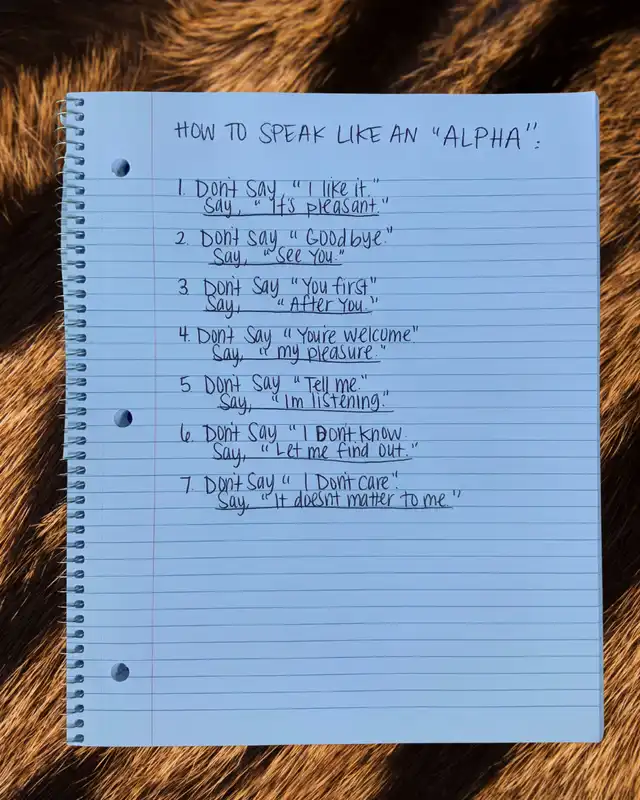 HOW TO SPEAK LIKE AN "ALPHA":
1. Don't Say, "I like it."
Say, "It's pleasant."
2. Don't Say "Goodbye."
Say, "See You."
3 Don't Say "You first"
Say, "After You."
4. Don't Say "You're welcome"
Say, "my pleasure."
5 Don't Say "Tell me."
Say, "Im listening."
6. Don't Say "I Don't know.
Say, "Let me find out."
7. Don't Say "I Don't care".
Say, "It doesn't matter to me"